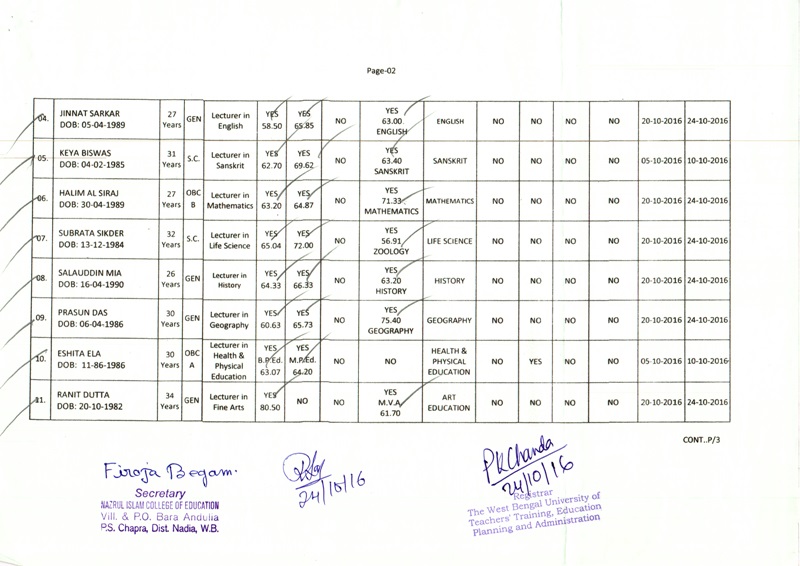 Page-02
04. JINNAT SARKAR DOB: 05-04-1989 27 Years GEN Lecturer in English YES 58.50 YES 65.85 NO YES 63.00 ENGLISH ENGLISH NO NO NO NO 20-10-2016 24-10-2016
05. KEYA BISWAS DOB: 04-02-1985 31 Years S.C. Lecturer in Sanskrit YES 62.70 YES 69.62 NO YES 63.40 SANSKRIT SANSKRIT NO NO NO NO 05-10-2016 10-10-2016
06. HALIM AL SIRAJ DOB: 30-04-1989 27 Years OBC B Lecturer in Mathematics YES 63.20 YES 64.87 NO YES 71.33 MATHEMATICS MATHEMATICS NO NO NO NO 20-10-2016 24-10-2016
07. SUBRATA SIKDER DOB: 13-12-1984 32 Years S.C. Lecturer in Life Science YES 65.04 YES 72.00 NO YES 56.91 ZOOLOGY LIFE SCIENCE NO NO NO NO 20-10-2016 24-10-2016
08. SALAUDDIN MIA DOB: 16-04-1990 26 Years GEN Lecturer in History YES 64.33 YES 66.33 NO YES 63.20 HISTORY HISTORY NO NO NO NO 20-10-2016 24-10-2016
09. PRASUN DAS DOB: 06-04-1986 30 Years GEN Lecturer in Geography YES 60.63 YES 65.73 NO YES 75.40 GEOGRAPHY GEOGRAPHY NO NO NO NO 20-10-2016 24-10-2016
10. ESHITA ELA DOB: 11-86-1986 30 Years OBC A Lecturer in Health & Physical Education YES B.P.Ed. 63.07 YES M.P.Ed. 64.20 NO NO HEALTH & PHYSICAL EDUCATION NO YES NO NO 05-10-2016 10-10-2016
11. RANIT DUTTA DOB: 20-10-1982 34 Years GEN Lecturer in Fine Arts YES 80.50 NO NO YES M.V.A 61.70 ART EDUCATION NO NO NO NO 20-10-2016 24-10-2016
CONT..P/3
Firoja Begam.
Secretary
NAZRUL ISLAM COLLEGE OF EDUCATION
Vill. & P.O. Bara Andulia
P.S. Chapra, Dist. Nadia, W.B.
24/10/16
PKChanda
24/10/16
Registrar
The West Bengal University of
Teachers' Training, Education
Planning and Administration